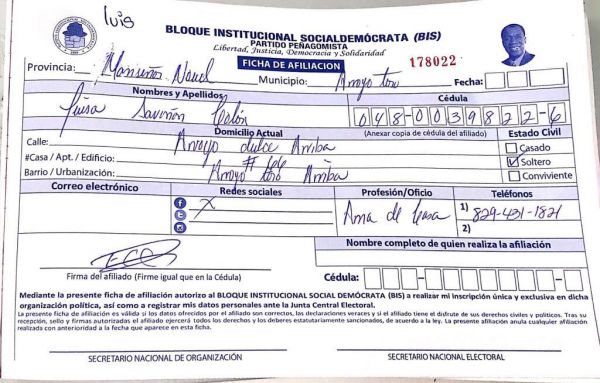 luis
BLOQUE INSTITUCIONAL SOCIALDEMÓCRATA (BIS)
PARTIDO PEÑAGOMISTA
Libertad, Justicia, Democracia y Solidaridad
FICHA DE AFILIACION
178022
Provincia: Monseñor Nouel Municipio: Arroyo toro Fecha:
Nombres y Apellidos
Cédula
Luisa Saviñon Colón
048-0039822-6
Domicilio Actual
(Anexar copia de cédula del afiliado)
Estado Civil
Calle: Arroyo dulce Arriba
Casado
#Casa / Apt. / Edificio: # 66
Soltero
Barrio / Urbanización: Arroyo toro Arriba
Conviviente
Correo electrónico
Redes sociales
Profesión/Oficio
Teléfonos
X
Ama de Casa
1) 829-431-1821
2)
Nombre completo de quien realiza la afiliación
Firma del afiliado (Firme igual que en la Cédula)
Cédula:
Mediante la presente ficha de afiliación autorizo al BLOQUE INSTITUCIONAL SOCIAL DEMÓCRATA (BIS) a realizar mi inscripción única y exclusiva en dicha
organización política, así como a registrar mis datos personales ante la Junta Central Electoral.
La presente ficha de afiliación es válida si los datos ofrecidos por el afiliado son correctos, las declaraciones veraces y si el afiliado tiene el disfrute de sus derechos civiles y políticos. Tras su
recepción, sello y firmas autorizadas el afiliado ejercerá todos los derechos y los deberes estatutariamente sancionados, de acuerdo a la ley. La presente afiliación anula cualquier afiliación
realizada con anterioridad a la fecha que aparece en esta ficha.
SECRETARIO NACIONAL DE ORGANIZACIÓN
SECRETARIO NACIONAL ELECTORAL